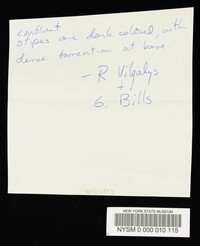 stipes are dark colored, with
dense tomentum at base
— R Vilgalys
+
G. Bills
NEW YORK STATE MUSEUM
NYSM 0 000 010 115